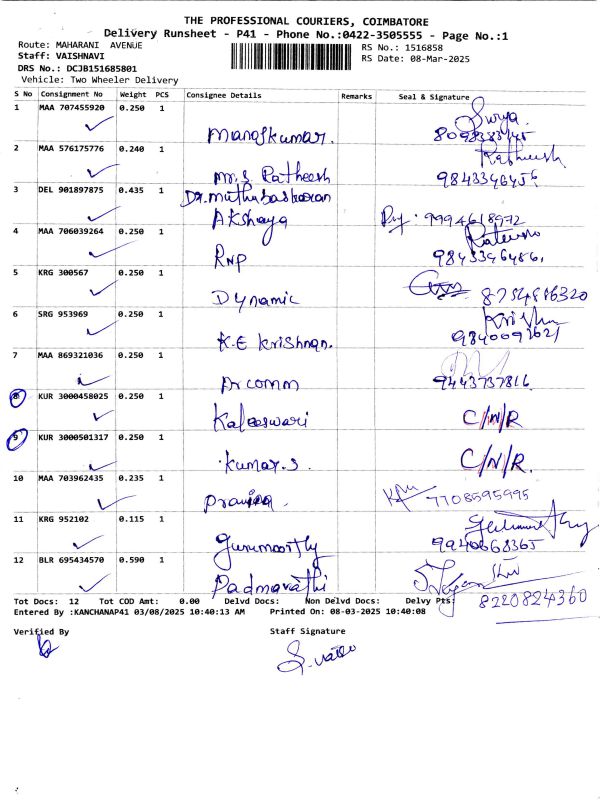 THE PROFESSIONAL COURIERS, COIMBATORE
Delivery Runsheet - P41 - Phone No.:0422-3505555 - Page No.:1
Route: MAHARANI AVENUE
RS No.: 1516858
Staff: VAISHNAVI
RS Date: 08-Mar-2025
DRS No.: DCJB151685801
Vehicle: Two Wheeler Delivery
S No Consignment No Weight PCS Consignee Details Remarks Seal & Signature
1 MAA 707455920 0.250 1 Surya
Manojkumar.
2 MAA 576175776 0.240 1 Ratheesh
Mr. S Ratheesh 9843346456
3 DEL 901897875 0.435 1 Dr. Muthubaskaran
Akshaya 9994618972
4 MAA 706039264 0.250 1
RNP 9843346456.
5 KRG 300567 0.250 1
Dynamic 8754816320
6 SRG 953969 0.250 1 Krishn
K.E Krishnan. 9840092621
7 MAA 869321036 0.250 1
Arcomm 9443737816.
8 KUR 3000458025 0.250 1
Kaleeswari C/N/R
9 KUR 3000501317 0.250 1
Kumar.S. C/N/R.
10 MAA 703962435 0.235 1
7708595995
11 KRG 952102 0.115 1
Gurumoorthy 9940668365
12 BLR 695434570 0.590 1
Padmavathi
8220824360
Tot Docs: 12 Tot COD Amt: 0.00 Delvd Docs: Non Delvd Docs: Delvy Pts:
Entered By :KANCHANAP41 03/08/2025 10:40:13 AM Printed On: 08-03-2025 10:40:08
Verified By Staff Signature